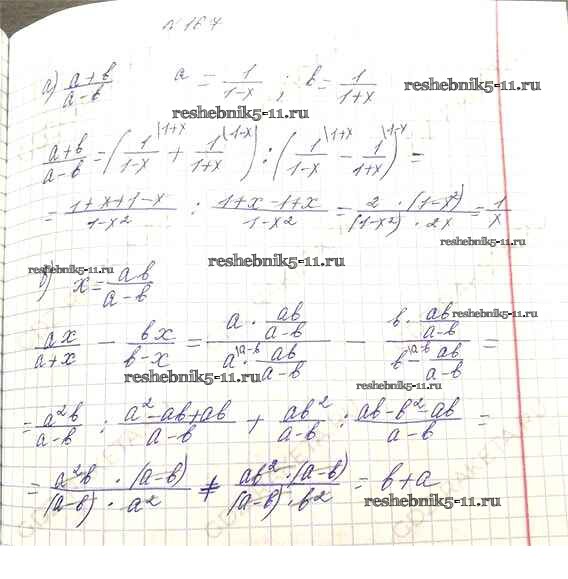 N 167
а) (a+b)/(a-b)   a = 1/(1-x) ; b = 1/(1+x)
reshebnik5-11.ru
reshebnik5-11.ru
(a+b)/(a-b) = (1/(1-x) |1+x + 1/(1+x) |1-x) : (1/(1-x) |1+x - 1/(1+x) |1-x) =
= (1+x+1-x)/(1-x²) : (1+x-1+x)/(1-x²) = (2 · (1-x²))/((1-x²) · 2x) = 1/x
reshebnik5-11.ru
reshebnik5-11.ru
б) x = ab/(a-b)
reshebnik5-11.ru
ax/(a+x) - bx/(b-x) = (a · ab/(a-b))/(a |a-b · ab/(a-b)) - (b · ab/(a-b))/(b |a-b - ab/(a-b)) =
reshebnik5-11.ru
reshebnik5-11.ru
= a²b/(a-b) : (a²-ab+ab)/(a-b) + ab²/(a-b) : (ab-b²-ab)/(a-b) =
= (a²b · (a-b))/((a-b) · a²) + (ab² · (a-b))/((a-b) · b²) = b+a
reshebnik5-11.ru